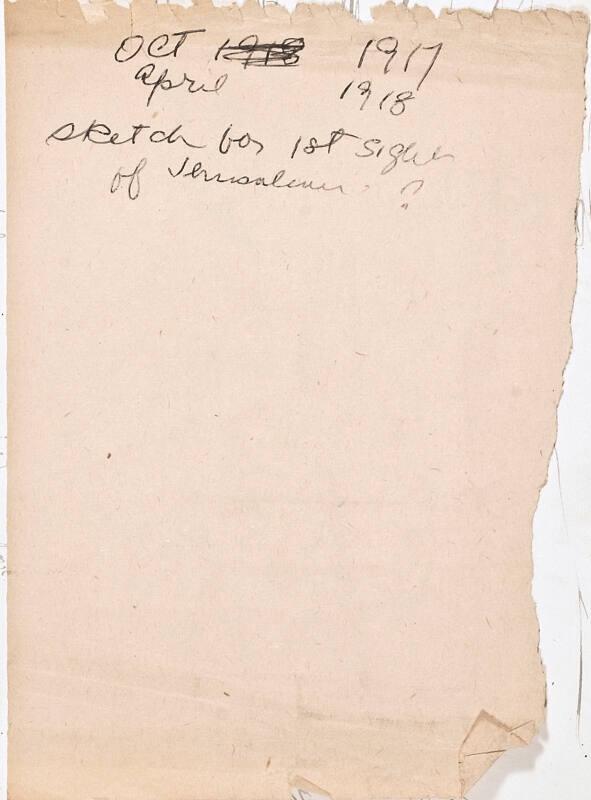 Oct 1918 1917
April 1918
Sketch for 1st Sight
of Jerusalem ?